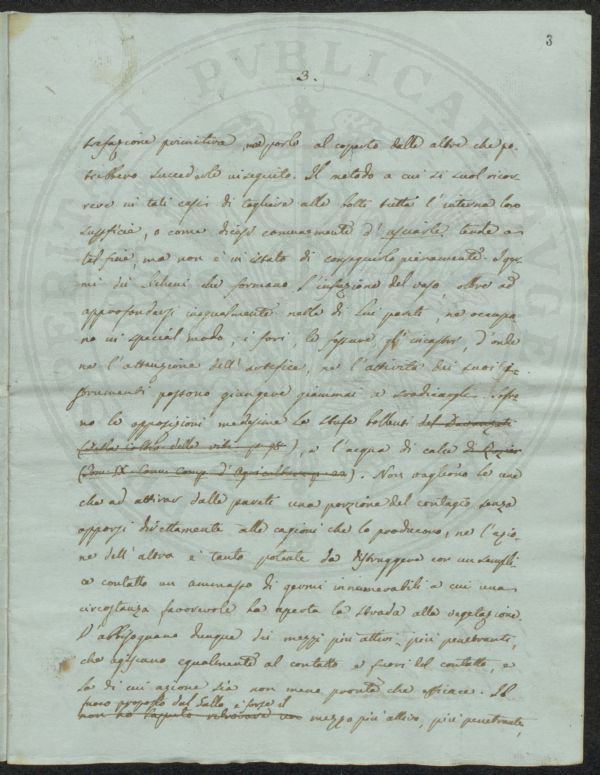 3
3.
trefazione primitiva, ne porle al coperto dalle altre che po-
trebbero succederle in seguito. Il metodo a cui si suol ricor-
rere in tali casi di togliere alle botti tutta l'interna loro
superficie, o come dicesi comunemente d'asciarle, tende a
tal fine, ma non è in istato di conseguirlo pienamente. I ger-
mi dei licheni che formano l'infezione del vaso oltre ad
approfondarsi inegualmente nelle di lui pareti, ne occupa-
no in special modo, i fori, le fessure, gl'incastri, d'onde
ne l'attenzione dell'artefice, ne l'attività dei suoi i-
strumenti possono giungere giammai a sradicargli. Sofro-
no le opposizioni medesime la stufa bollente del Davanzati
(della coltiv. delle viti), e l'acqua di calce di Rozier
(Tom. IX Cours comp. d'Agriculture). Non vagliono le une
che ad attivar dalle pareti una porzione del contagio senza
opporsi direttamente alle cagioni che lo producono, ne l'azio-
ne dell'altra è tanto potente da distruggere con un sempli-
ce contatto un ammasso di germi innumerabili a cui una
circostanza favorevole ha aperta la strada alla vegetazione.
S'abbisognano dunque dei mezzi più attivi, più penetranti,
che agiscano egualmente al contatto e fuori del contatto, e
la di cui azione sia non meno pronta che efficace. Il
fuoco proposto dal Gallo, è forse il
non ho saputo ritrovare un mezzo più attivo, più penetrante,